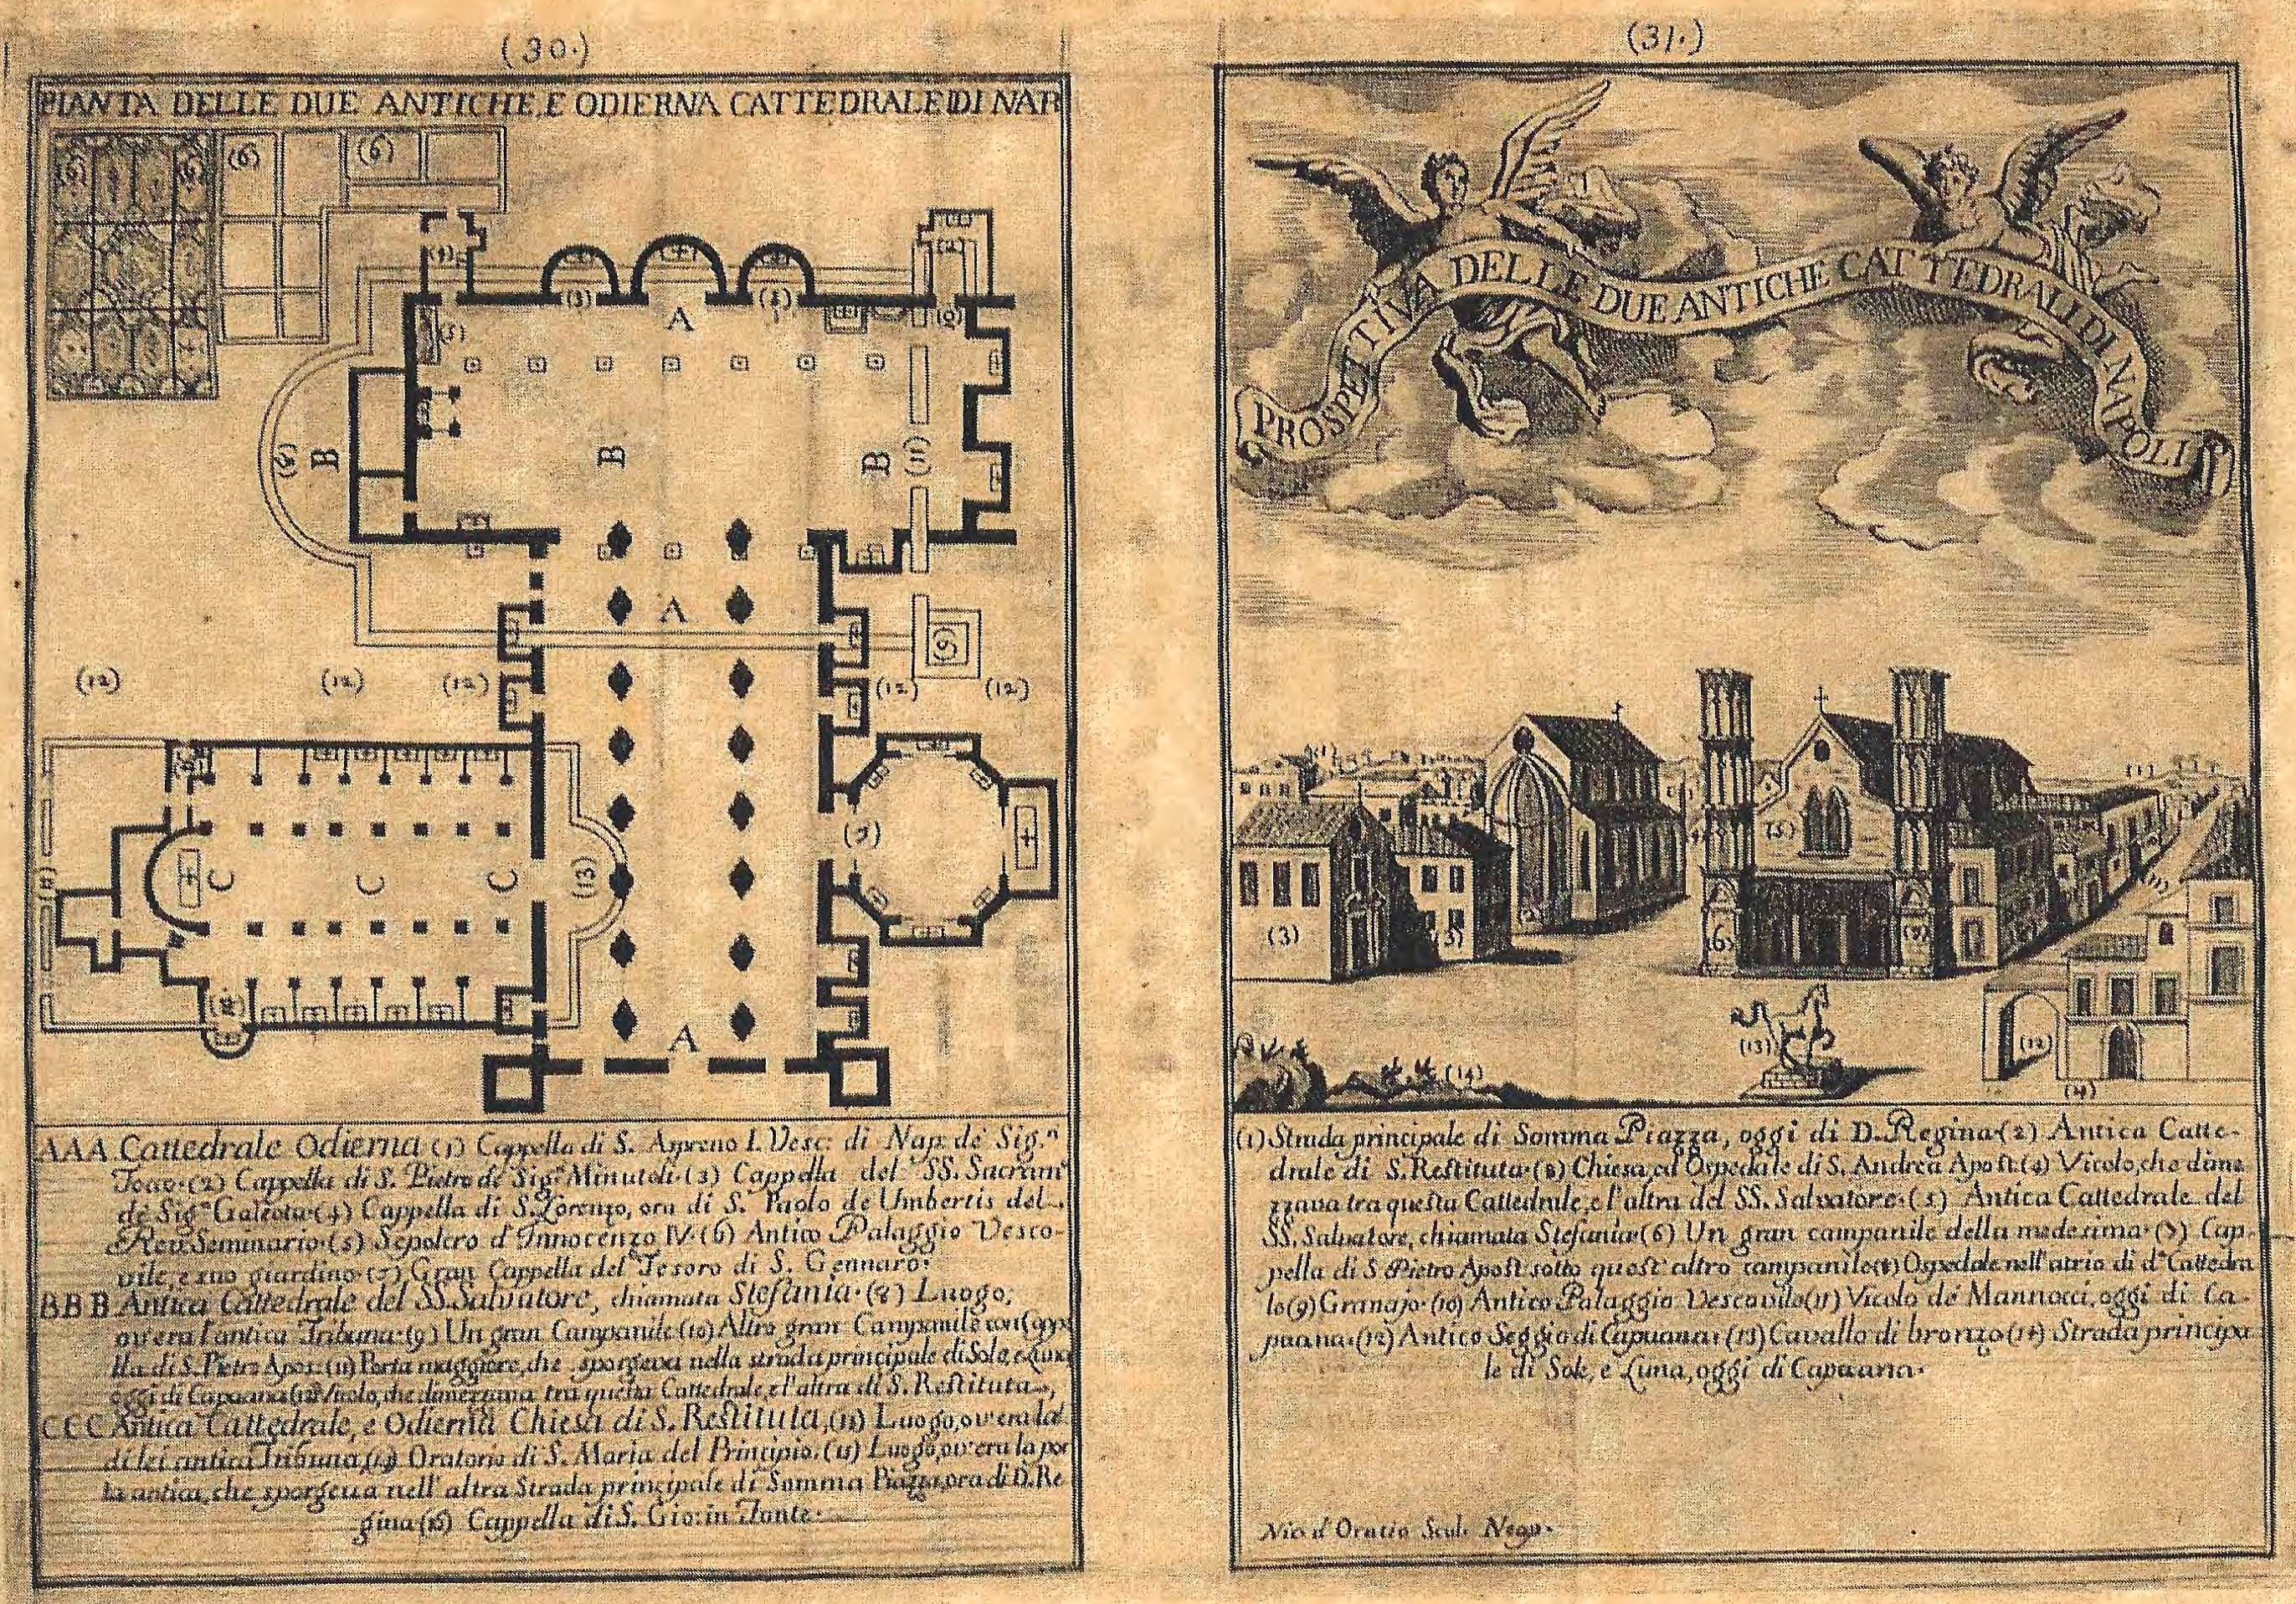 (30.)
PIANTA DELLE DUE ANTICHE, E ODIERNA CATTEDRALE DI NAP
(6)
(6)
(6)
(6)
(1)
(2)
(3)
A
(4)
(10)
(5)
(8)
B
B
B
(11)
A
(9)
(12)
(12)
(12)
(12)
(12)
(7)
C
C
C
(13)
A
AAA Cattedrale Odierna (1) Cappella di S. Aspreno I. Vesc: di Nap: de Sig.ri
Toco. (2) Cappella di S. Pietro de Sig.ri Minutoli. (3) Cappella del SS. Sacram.to
de Sig.ri Galeota. (4) Cappella di S. Lorenzo, ora di S. Paolo de Umbertis del
Rev. Seminario. (5) Sepolcro d'Innocenzo IV. (6) Antico Palaggio Vesco-
vile, e suo giardino. (7) Gran Cappella del Tesoro di S. Gennaro.
BBB Antica Cattedrale del SS. Salvatore, chiamata Stefania. (8) Luogo,
ov'era l'antica Tribuna. (9) Un gran Campanile (10) Altro gran Campanile con Cappe
lla di S. Pietro Apos: (11) Porta maggiore, che sporgeva nella strada principale di Sole, e Luna
oggi di Capuana (12) Vicolo, che dimezzava tra questa Cattedrale, e l'altra di S. Restituta.
CCC Antica Cattedrale, e Odierna Chiesa di S. Restituta, (13) Luogo, ov'era la
di lei antica Tribuna, (14) Oratorio di S. Maria del Principio. (15) Luogo, ov'era la por
ta antica, che sporgeva nell'altra Strada principale di Somma Piazza, ora di D. Re
gina (16) Cappella di S. Gio: in Fonte.
(31.)
PROSPETTIVA DELLE DUE ANTICHE CATTEDRALI DI NAPOLI
(5)
(3)
(3)
6
(7)
(11)
(13)
(12)
(14)
(1) Strada principale di Somma Piazza, oggi di D. Regina. (2) Antica Catte-
drale di S. Restituta. (3) Chiesa, ed Ospedale di S. Andrea Apost. (4) Vicolo, che dime
zzava tra questa Cattedrale, e l'altra del SS. Salvatore. (5) Antica Cattedrale del
SS. Salvatore, chiamata Stefania. (6) Un gran campanile della medesima. (7) Cap-
pella di S. Pietro Apost. sotto quest'altro campanile. (8) Ospedale nell'atrio di d.a Cattedra
le (9) Granajo. (10) Antico Palaggio Vescovile (11) Vicolo de Mannocci, oggi di Ca-
puana. (12) Antico Seggio di Capuana. (13) Cavallo di bronzo (14) Strada principa
le di Sole, e Luna, oggi di Capuana.
Nic. d'Oratio Scul. Neap.